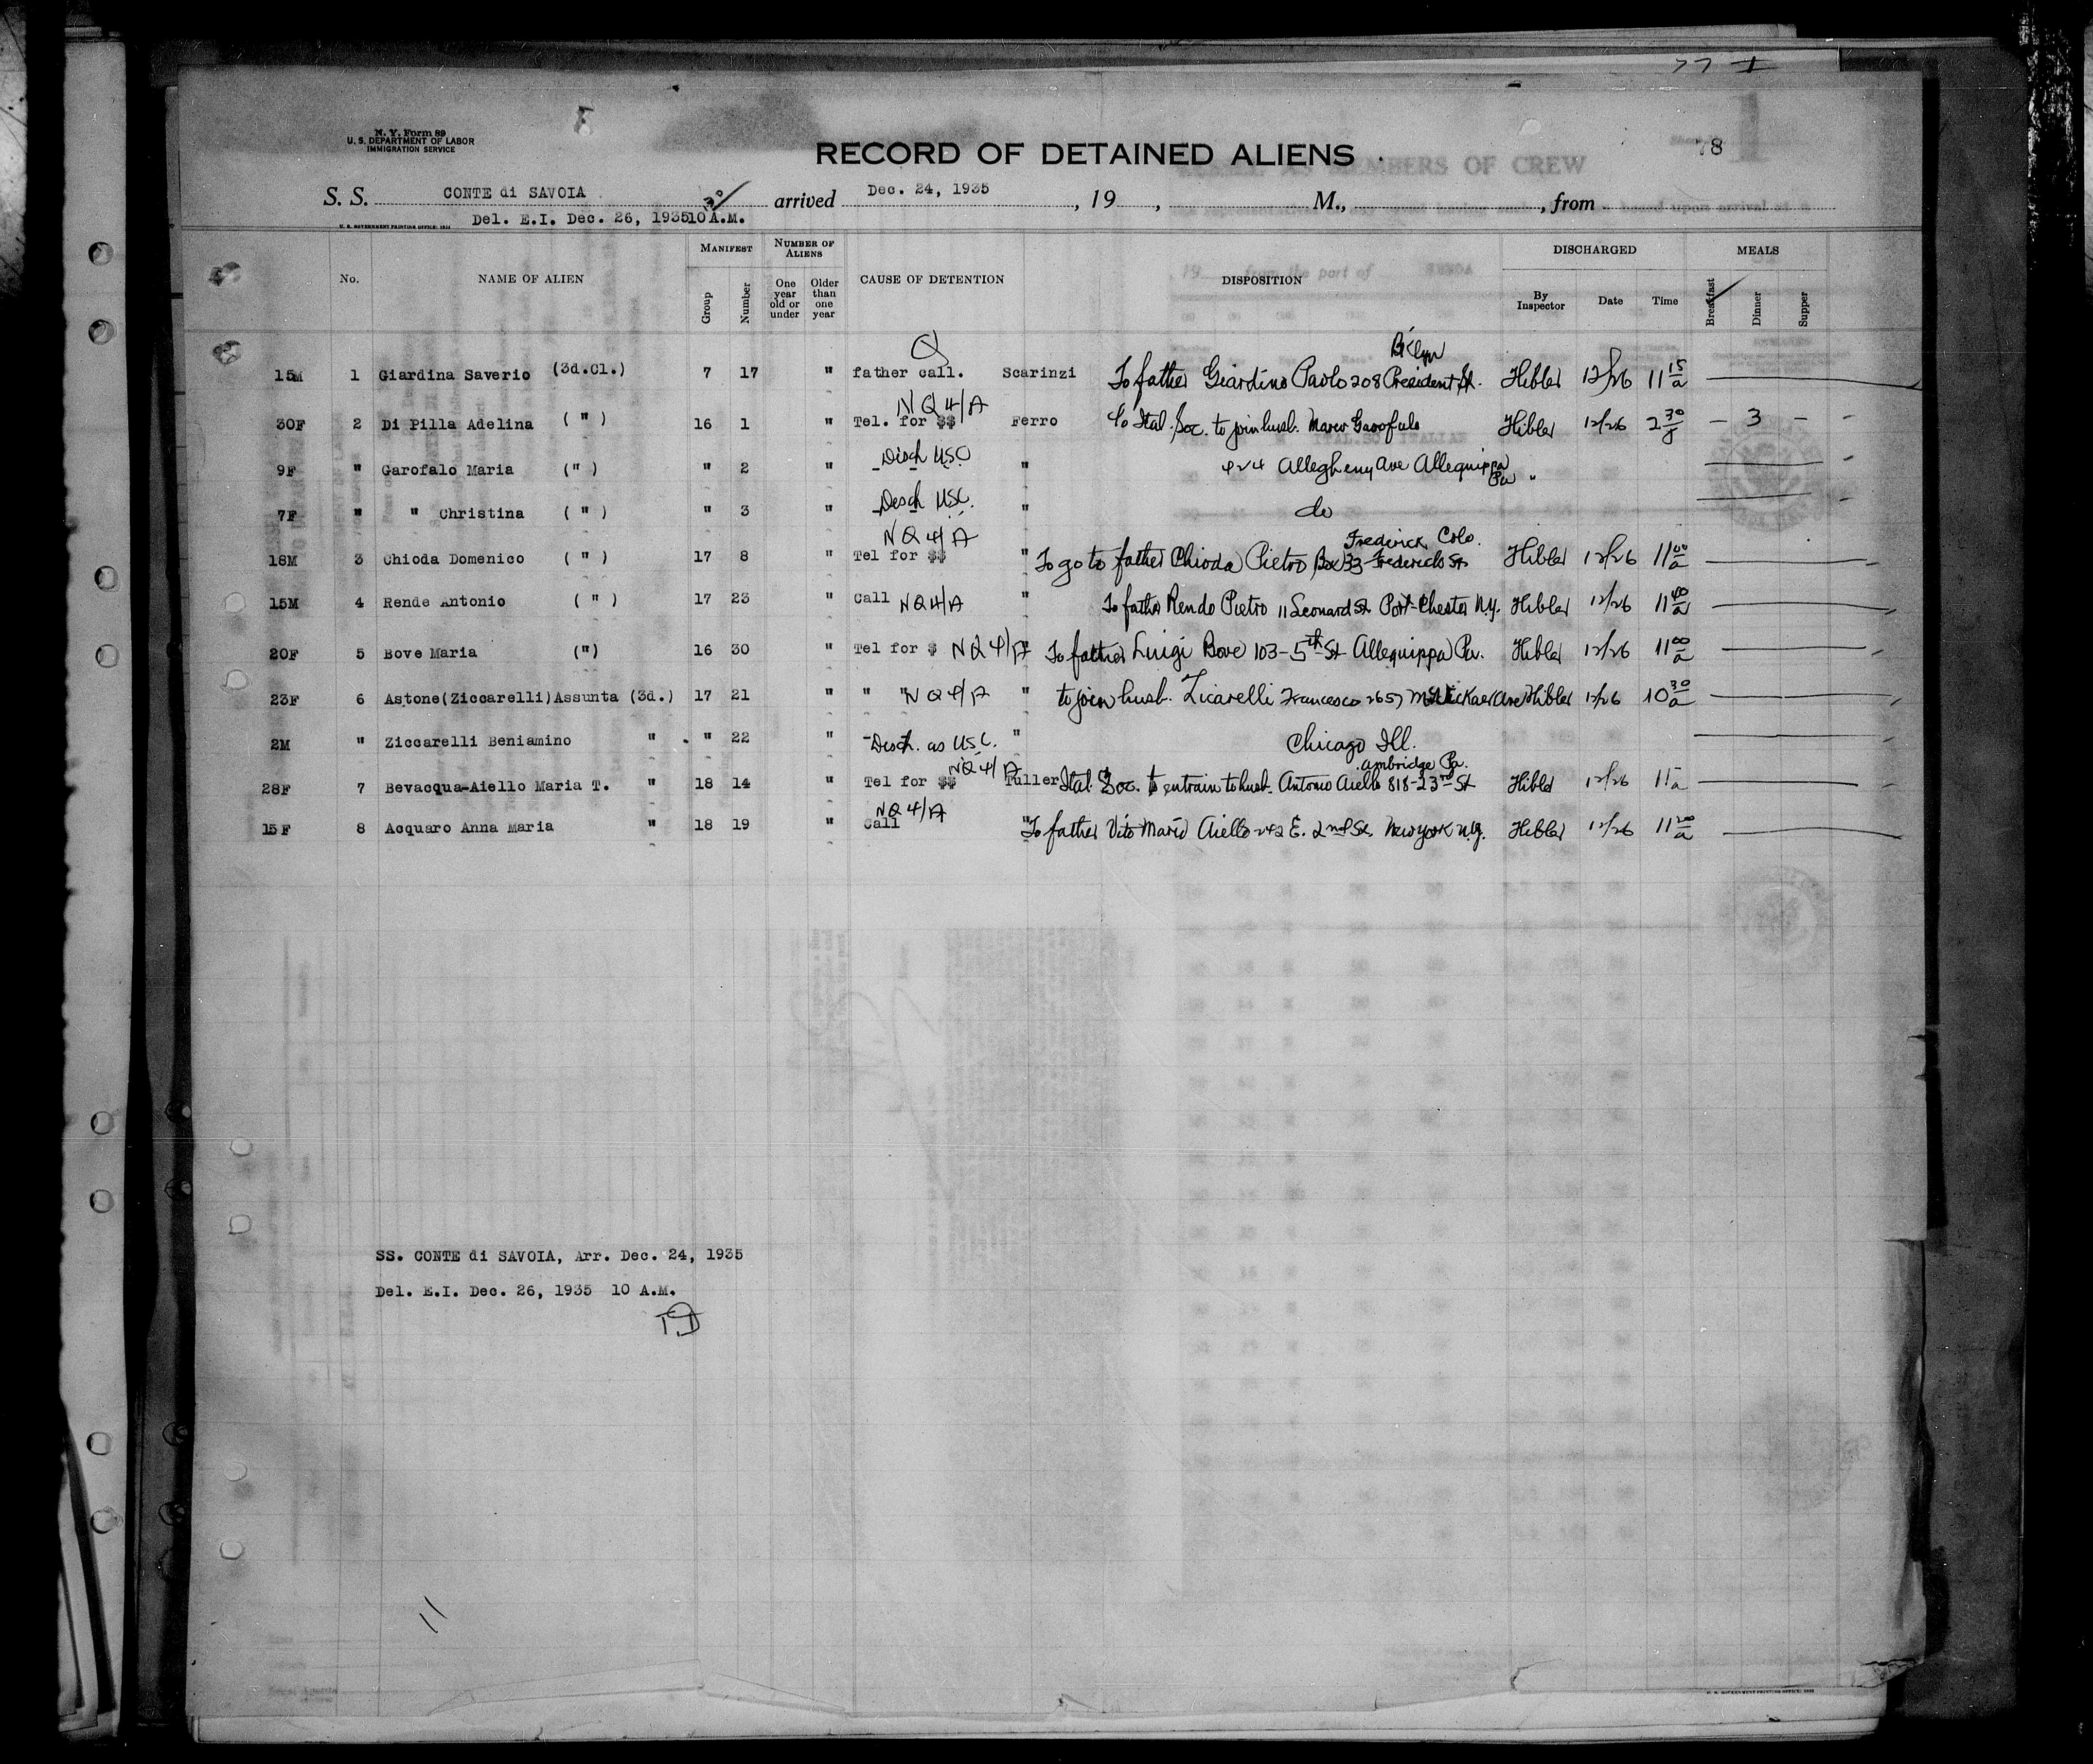 N. Y. Form 89
U. S. DEPARTMENT OF LABOR
IMMIGRATION SERVICE
RECORD OF DETAINED ALIENS
78
S. S. CONTE di SAVOIA arrived Dec. 24, 1935, 19 , M., , from
Del. E.I. Dec. 26, 1935 10 A.M.
U. S. GOVERNMENT PRINTING OFFICE
No. NAME OF ALIEN MANIFEST Group Number NUMBER OF ALIENS One year old or under Older than one year CAUSE OF DETENTION DISPOSITION DISCHARGED By Inspector Date Time MEALS Breakfast Dinner Supper
15M 1 Giardina Saverio (3d.Cl.) 7 17 " father call. Scarinzi To father Giardino Paolo 208 President St. B'klyn Hibler 12/26 11 15 a
30F 2 Di Pilla Adelina ( " ) 16 1 " Tel. for $$ NQ 4/A Ferro To Ital. Soc. to join husb. Marco Garofalo Hibler 12/26 2 30 – 3 – –
9F " Garofalo Maria (" ) " 2 " Disch USC " 424 Allegheny Ave Allequippa Pa "
7F " " Christina ( " ) " 3 " Desch USC. " do
18M 3 Chioda Domenico ( " ) 17 8 " Tel for $$ NQ 4/A " To go to father Chioda Pietro Box 33 Frederick Colo. Hibler 12/26 11 00 a
15M 4 Rende Antonio ( " ) 17 23 " Call NQ4/A " To father Rendo Pietro 11 Leonard St Port-Chester N.Y. Hibler 12/26 11 40 a
20F 5 Bove Maria (") 16 30 " Tel for $ NQ 4/A " To father Luigi Bove 103-5th St Allequippa Pa. Hibler 12/26 11 00 a
23F 6 Astone(Ziccarelli)Assunta (3d.) 17 21 " " " NQ 4/A " to join husb. Zicarelli Francesco 2657 Ave Hibler 12/26 10 30 a
2M " Ziccarelli Beniamino " " 22 " Desch. as USC. " Chicago Ill.
28F 7 Bevacqua-Aiello Maria T. " 18 14 " Tel for $$ NQ 4/A Tuller Ital. Soc. to entrain to husb. Antonio Aiello 818-23rd St Ambridge Pa. Hibler 12/26 11 a
15F 8 Acquaro Anna Maria " 18 19 " Call NQ 4/A " To father Vito Mario Aiello 242 E. 2nd St. New York N.Y. Hibler 12/26 11 20 a
SS. CONTE di SAVOIA, Arr. Dec. 24, 1935
Del. E.I. Dec. 26, 1935 10 A.M.